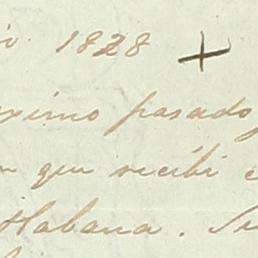 1828 +
ximo pasado
que recibi
Habana. Su